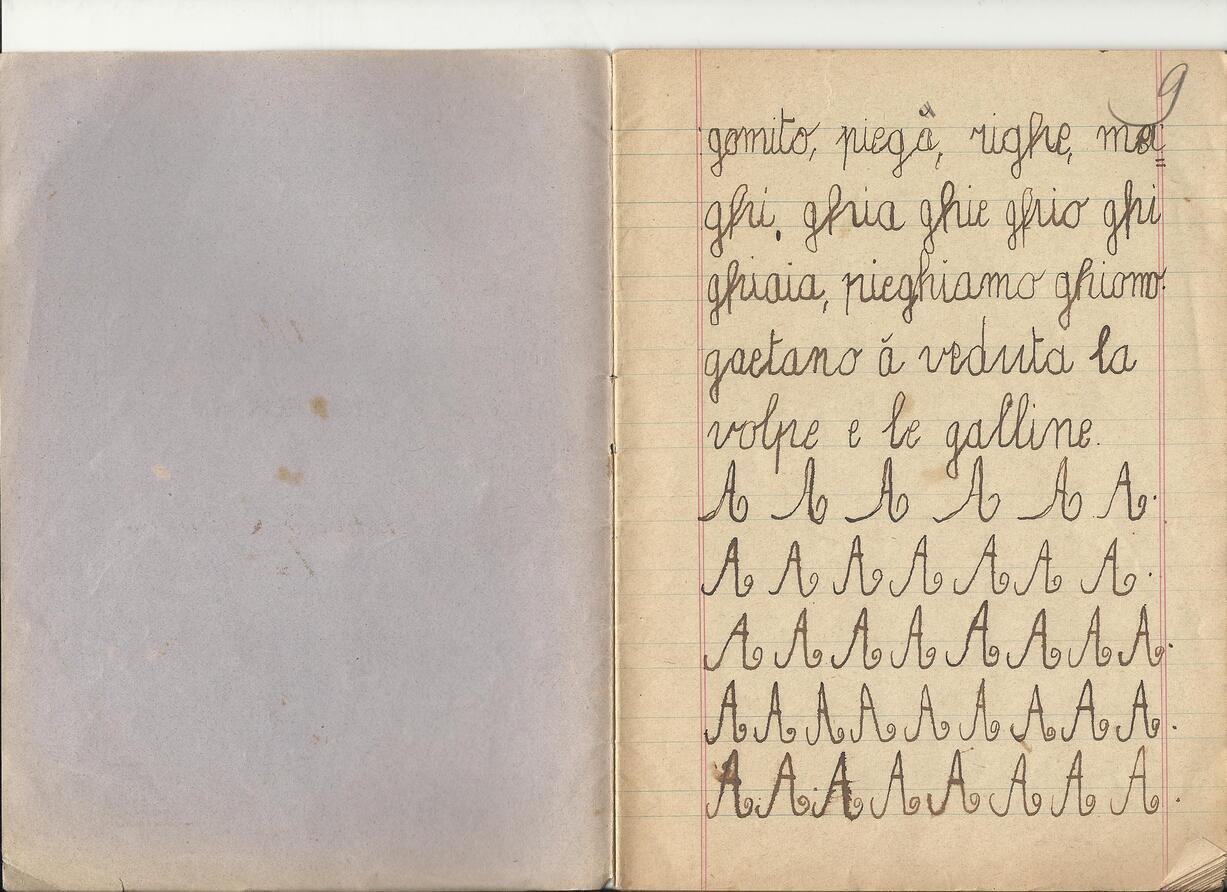 9
gomito, piega, righe, ma=
ghi. ghia ghie ghio ghi
ghiaia, pieghiamo ghiomo.
gaetano à veduta la
volpe e le galline.
A A A A A A.
A A A A A A A.
A A A A A A A A.
A A A A A A A A A.
A A A A A A A A.